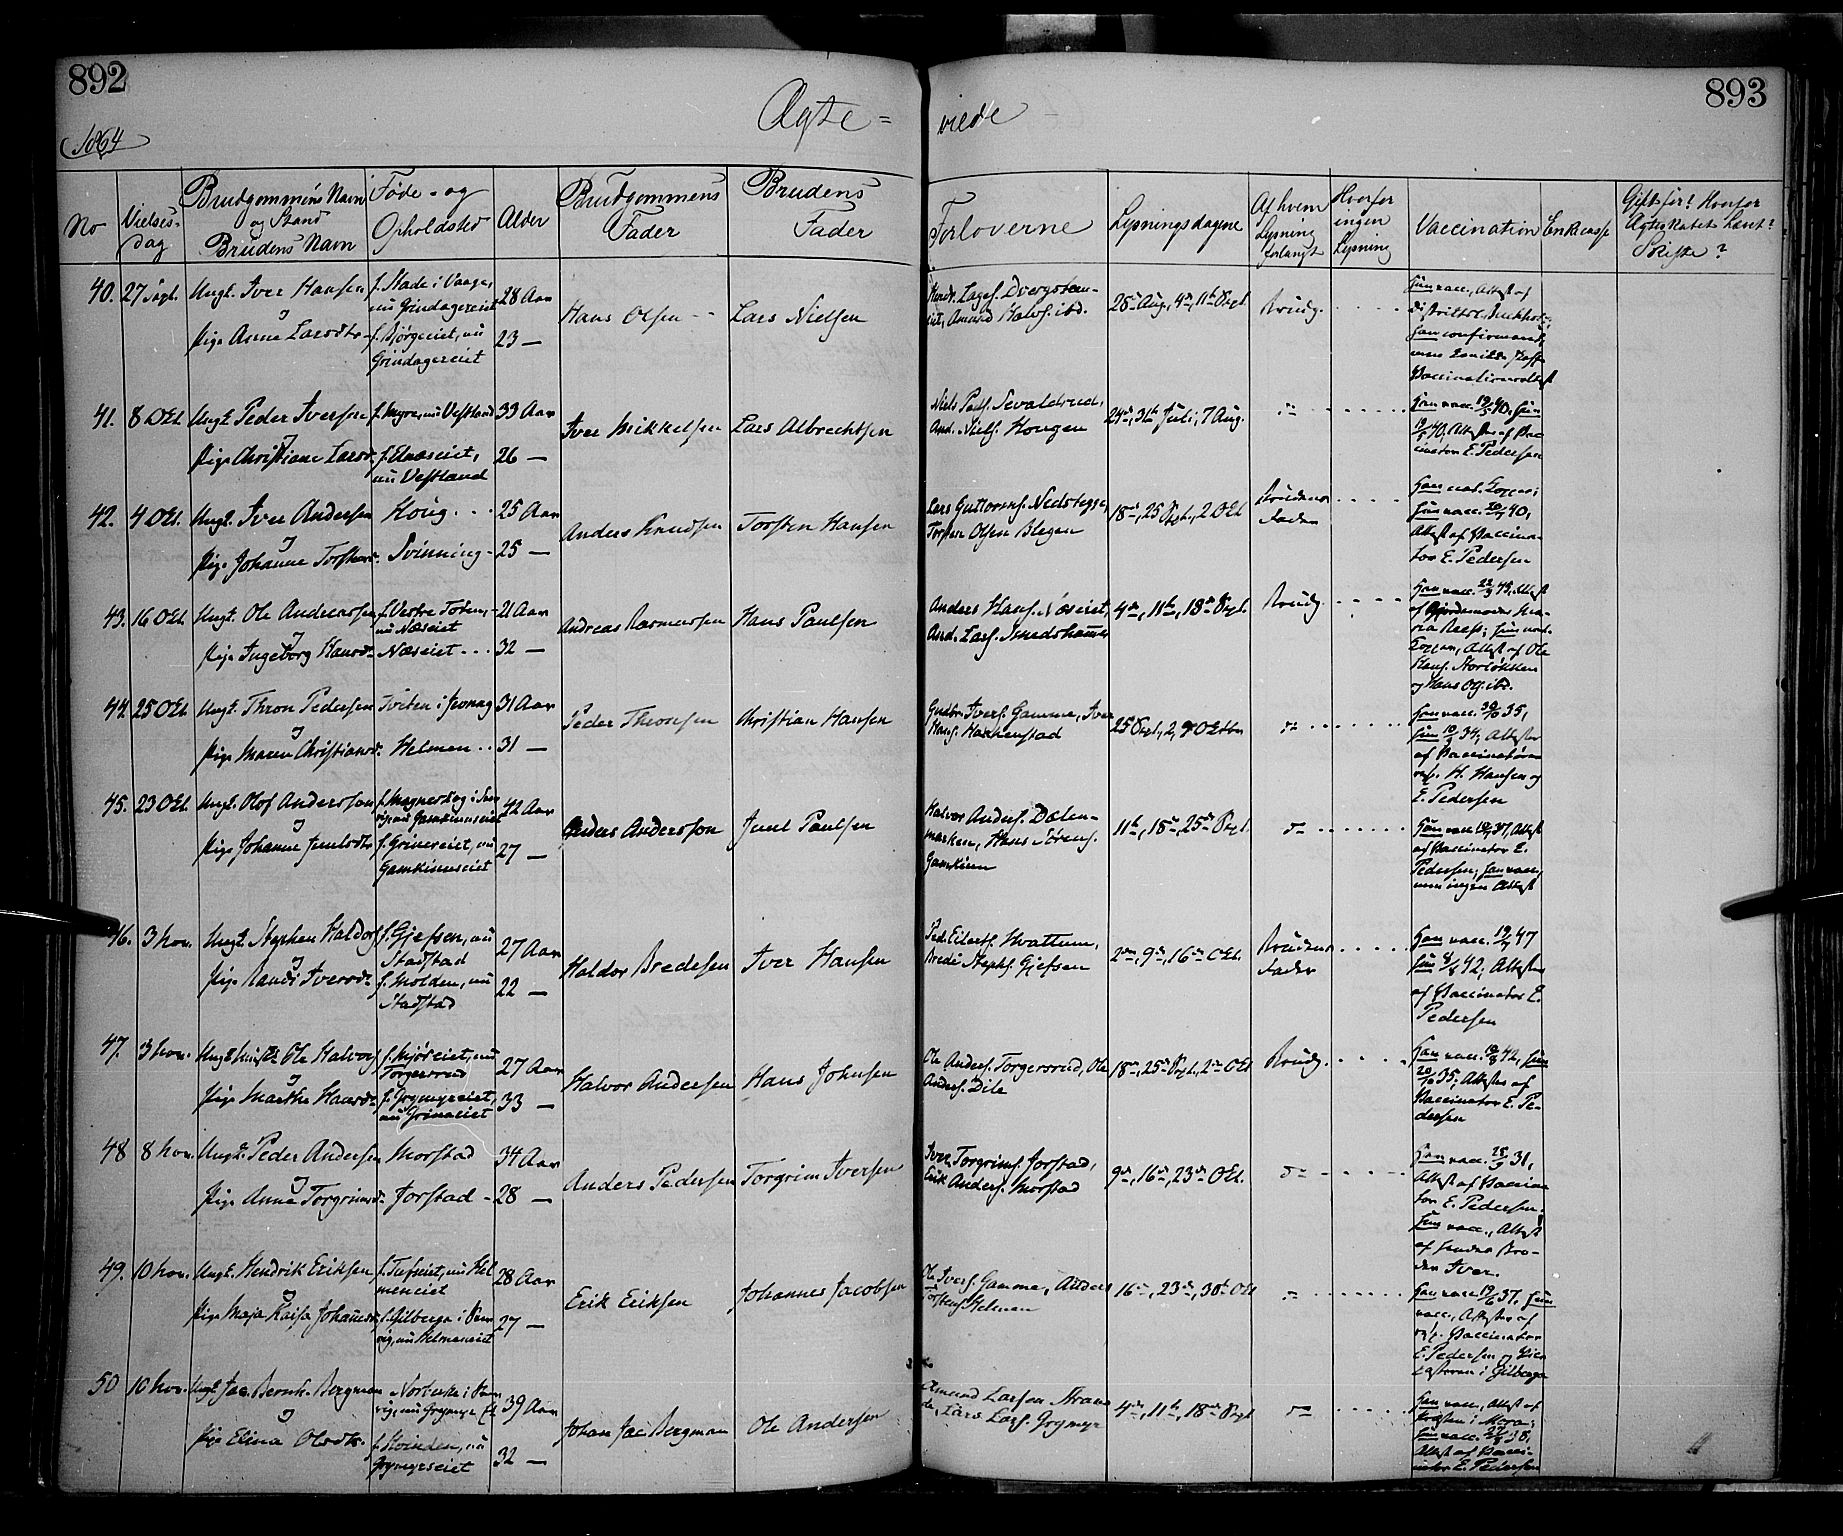 892
893
Ægte= viede
1864
No
Vielses-
dag
Brudgommens Navn
og Stand
Brudens Navn
Føde- og
Opholdsted
Alder
Brudgommens
Fader
Brudens
Fader
Forloverne
Lysningsdagene
Af hvem
Lysning
forlangt
Hvorfor
ingen
Lysning
Vaccination
Enkecasse
Gift før? Hvorfor
Ægteskabet hævt?
Skifte?
40. 27 Sept. Ungk. Iver Hansen
og
Pige Anne Larsdtr
nu Grindagereiet
f. Bjørgeiet, nu
Grindagereiet
28 Aar
23 —
Hans Olsen
Lars Nielsen
28de Aug., 4de, 11te Sept.
Brudg.
Attest af
Han confirmeret,
Vaccinationsattest
41. 8 Oct. Ungk. Peder Iversen
og
Pige Christiane Larsd.
f. Myre, nu Vestland
nu Vestland
33 Aar
26 —
Iver Mikkelsen
Lars Albrechtsen
Niels Pauls. Sevaldrud,
And. Niels. Kongen
24de, 31te Juli, 7 Aug.
Han vacc. 40, Hun
40, Attest af Vac-
cinator E. Pedersen
42. 4 Oct. Ungk. Iver Andersen
og
Pige Johanne Torstensd.
Houg
Svinning
25 Aar
25 —
Anders Knudsen
Torsten Hansen
Lars Guttorms. Nedstegge,
Torsten Olsen Blegen
18de, 25 Sept., 2 Oct.
Brudens
Fader
Han nat. Kopper;
Hun vacc. 40,
Attest af Vaccina-
tor E. Pedersen
43. 16 Oct. Ungk. Ole Andreassen
og
Pige Ingeborg Hansd.
f. Vestre Toten,
nu Næseiet
Næseiet
21 Aar
32 —
Andreas Rasmussen
Hans Paulsen
Anders Hans. Næseiet,
And. Lars. Smedshammer
4de, 11te, 18de Sept.
Brudg.
Han vacc. 43, Attest
af Gjordemoder Ma-
ria Raast; Hun nat.
Kopper, Attest af Ole
Hans. Storløkken
og Hans Ols. ibd.
44. 25 Oct. Ungk. Thron Pedersen
og
Pige Maren Christiansd.
Tviten i Jevnag
Helmen
31 Aar
31 —
Peder Thronsen
Christian Hansen
Gudbr. Ivers. Gamme, Iver
Hans. Hackenstad
25 Sept., 2, 9 Octbr
Han vacc. 35,
Hun 34, Attester
af Vaccinatørerne
resp. H. Hansen og
E. Pedersen
45. 23 Oct. Ungk. Olof Andersson
og
Pige Johanne Juulsdtr
nu Gamkinneseiet
f. Grinereiet, nu
Gamkinneseiet
42 Aar
27 —
Anders Andersson
Juul Paulsen
Halvor Anders. Dælen-
marken, Hans Sørens.
Gamkinn
11te, 18de, 25de Sept.
Hun vacc. 37, Attest
af Vaccinator E.
Pedersen; Han vacc.,
men ingen Attest
46. 3 Nov. Ungk. Stephen Haldors.
og
Pige Randi Iversd.
f. Gjefsen, nu
Stadstad
f. Molden, nu
Stadstad
27 Aar
22 —
Haldor Bredesen
Iver Hansen
Ped. Eilerts. Hvattum,
Brede Stephs. Gjefsen
2den, 9de, 16de Oct.
Brudens
Fader
Han vacc. 47
Hun 42, Attester
af Vaccinator E.
Pedersen
47. 3 Nov. Ole Halvors.
og
Pige Marthe Hansd.
nu
Torgersrud
f. Grymyreiet,
nu Grinaeiet
27 Aar
33 —
Halvor Andersen
Hans Johnsen
Ole Anders. Torgersrud, Ole
Anders. Dile
18de, 25de Sept., 2den Oct.
Brudg.
Han vacc. 42, Hun
35, Attester af
Vaccinator E. Pe-
dersen
48 8 Nov. Ungk. Peder Andersen
og
Pige Anne Torgrimsd.
Morstad
Jorstad
34 Aar
28 —
Anders Pedersen
Torgrim Iversen
Iver Torgrims. Jorstad,
Erik Anders. Morstad
9de, 16de, 23de Oct.
Han vacc. 31,
Attest af Vaccina-
tor E. Pedersen.
Hun vacc., Attest
af hendes Bro-
der Iver.
49. 10 Nov. Ungk. Hendrik Eriksen
og
Pige Maja Kaisa Johannesd.
f. Tufseiet, nu Hel-
meneiet
f. Gilberga i Sver-
rig, nu Helmeneiet
28 Aar
27 —
Erik Eriksen
Johannes Jacobsen
Ole Ivers. Gamme, Anders
Torstens. Helmen
16de, 23de, 30te Oct.
Han vacc. 37, Hun
vacc., Attester af
resp. Vaccinator
E. Pedersen og
i Gilberga
50 10 Nov. Ungk. Jac. Bernh. Bergman
og
Pige Elina Olsdtr.
i Sver-
rig, nu Grymyr
f. Hvinden, nu
Grymyrseiet
39 Aar
32 —
Johan Jac. Bergman
Ole Andersen
Amund Larsen
Lars Lars. Grymyr
4de, 11te, 18de Sept.
Han vacc., Attest af
Præsten i Mora;
Hun vacc. 38,
Attest af Vacci-
nator E. Pedersen